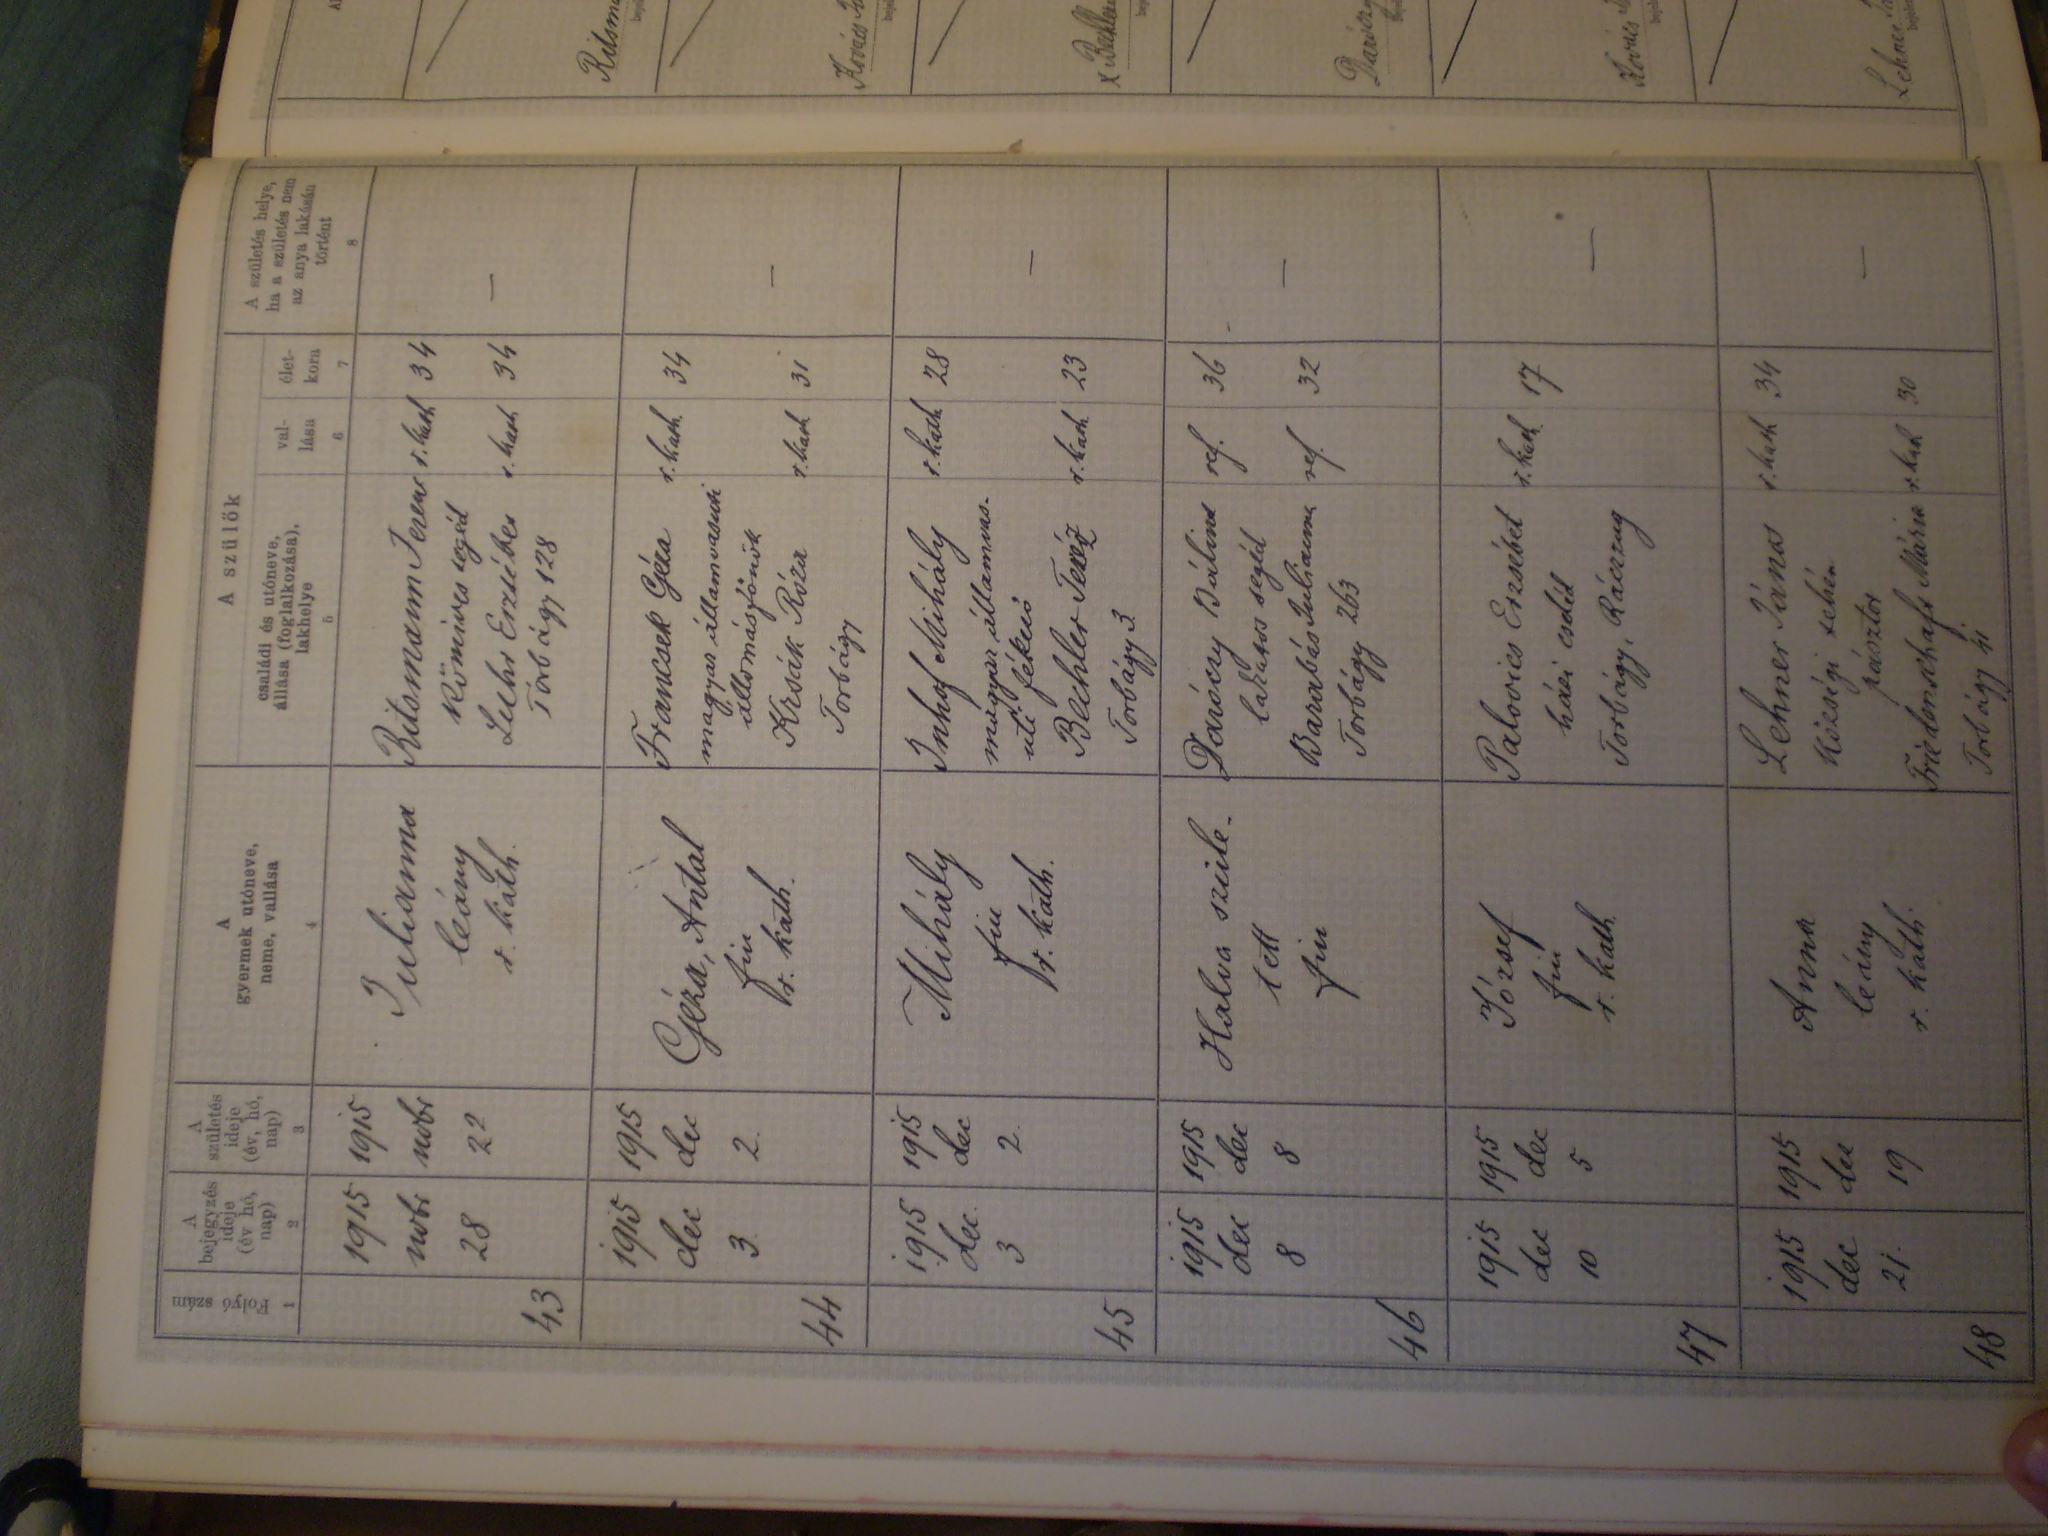 Folyó szám
1
A bejegyzés ideje (év hó, nap)
2
A születés ideje (év, hó, nap)
3
A gyermek utóneve, neme, vallása
4
A szülők
családi és utóneve, állása (foglalkozása), lakhelye
5
val-lása
6
élet-kora
7
A születés helye, ha a születés nem az anya lakásán történt
8
43
1915
novbr
28
1915
novbr
22
Julianna
leány
r. kath.
Ritsmann Ferenc r. kath 34
Kőmives segéd
Erzsébet r. kath 34
Torbágy 128
—
44
1915
dec
3
1915
dec
2.
Géza, Antal
fiu
r. kath.
Francsek Géza r. kath. 34
magyar államvasuti
állomásfőnök
Krsák Róza r. kath 31
Torbágy
—
45
1915
dec.
3
1915
dec
2.
Mihály
fiu
r. kath.
Inhof Mihály r. kath 28
magyar államvas-
uti fékező
Bechler Teréz r. kath 23
Torbágy 3
—
46
1915
dec
8
1915
dec
8
Halva szüle-
tett
fiu
Daróczy Bálint ref. 36
lakatos segéd
Barabás Julianna ref 32
Torbágy 263
—
47
1915
dec
10
1915
dec
5
József
fiu
r. kath
Palovics Erzsébet r. kath. 17
házi cseléd
Torbágy, Ráczzug
—
48
1915
dec
21.
1915
dec
19
Anna
leány
r. kath.
Lehner János r. kath 34
Községi tehén
pásztor
Mária r. kath 30
Torbágy 41
—
Kovács
x Bechler
Daróczy
Kovács
Lehner